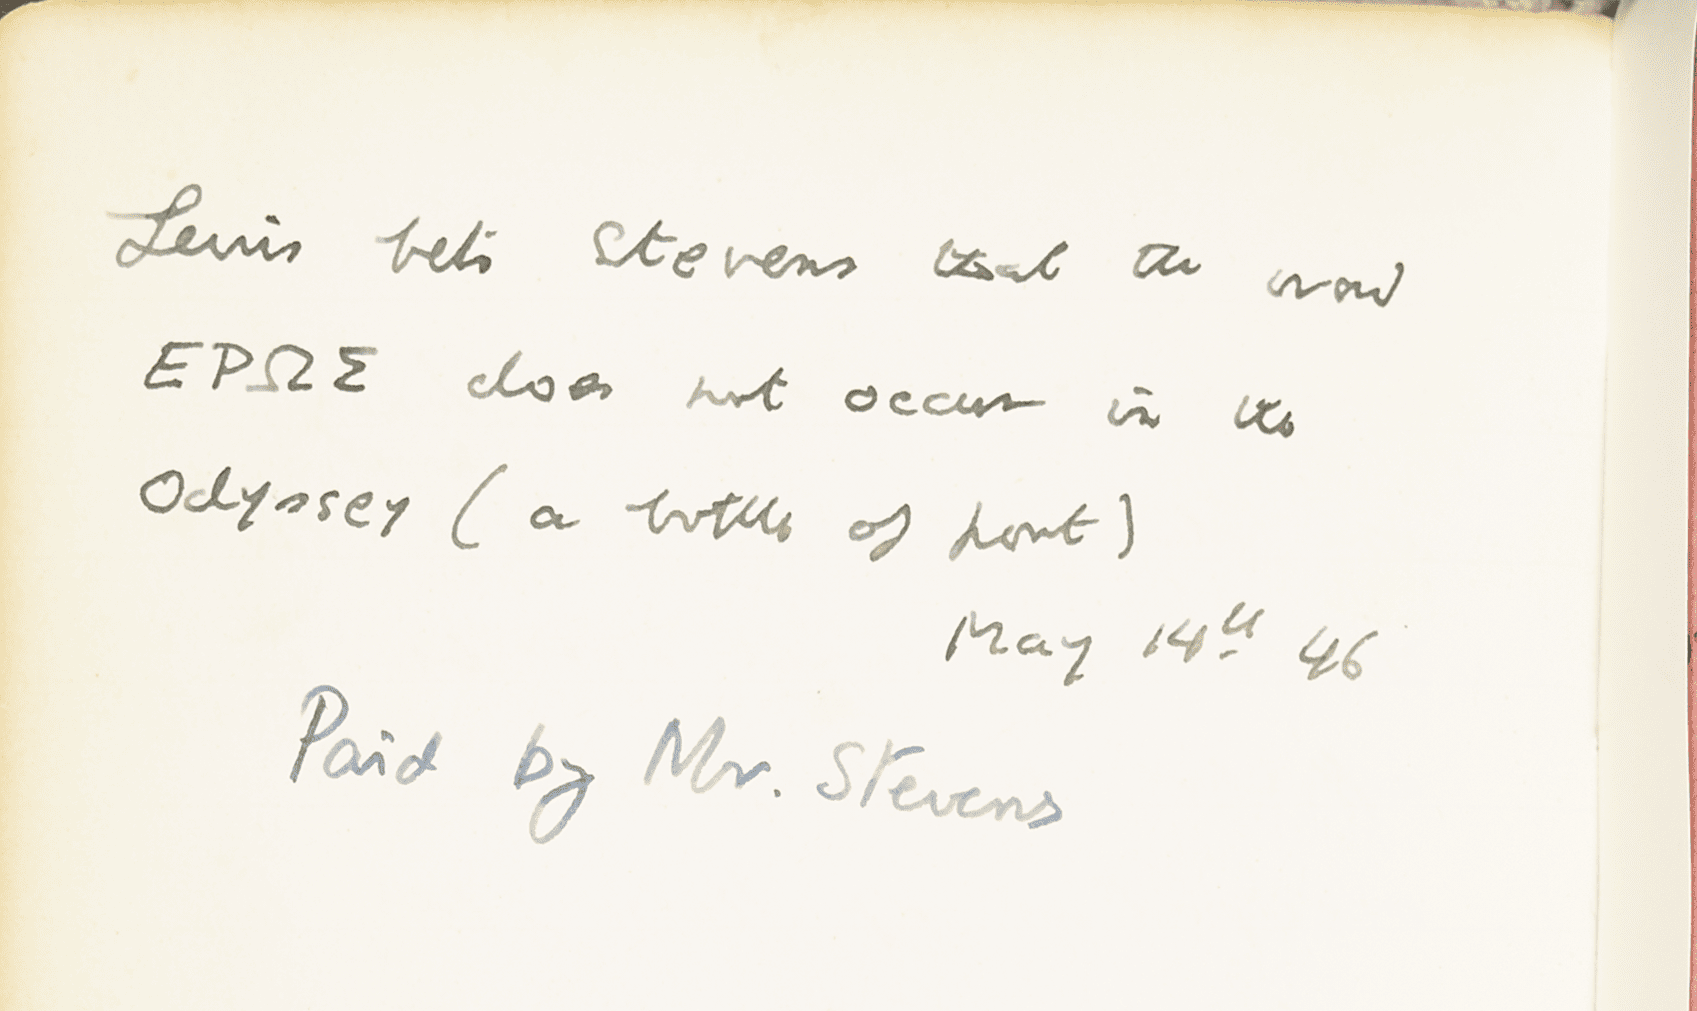 Lewis bets Stevens that the word
ΕΡΩΣ does not occur in the
Odyssey (a bottle of port)
May 14th 46
Paid by Mr. Stevens